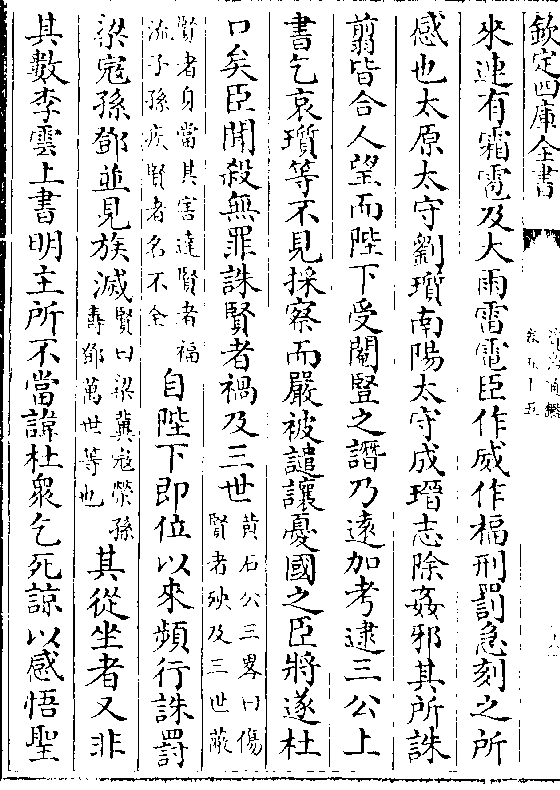 欽定四庫全書
資治通鑑
卷五十五
來連有霜雹及大雨雷電臣作威作福刑罰急刻之所
感也太原太守劉瓆南陽太守成瑨志除姦邪其所誅
翦皆合人望而陛下受閹豎之譖乃遠加考逮三公上
書乞哀瓆等不見採察而嚴被譴讓憂國之臣將遂杜
口矣臣聞殺無罪誅賢者禍及三世黄石公三畧曰傷賢者殃及三世蔽
賢者身當其害達賢者福流子孫疾賢者名不全自陛下即位以來頻行誅罰
梁寇孫鄧並見族滅賢曰梁冀寇榮孫壽鄧萬世等也其從坐者又非
其數李雲上書明主所不當諱杜衆乞死諒以感悟聖